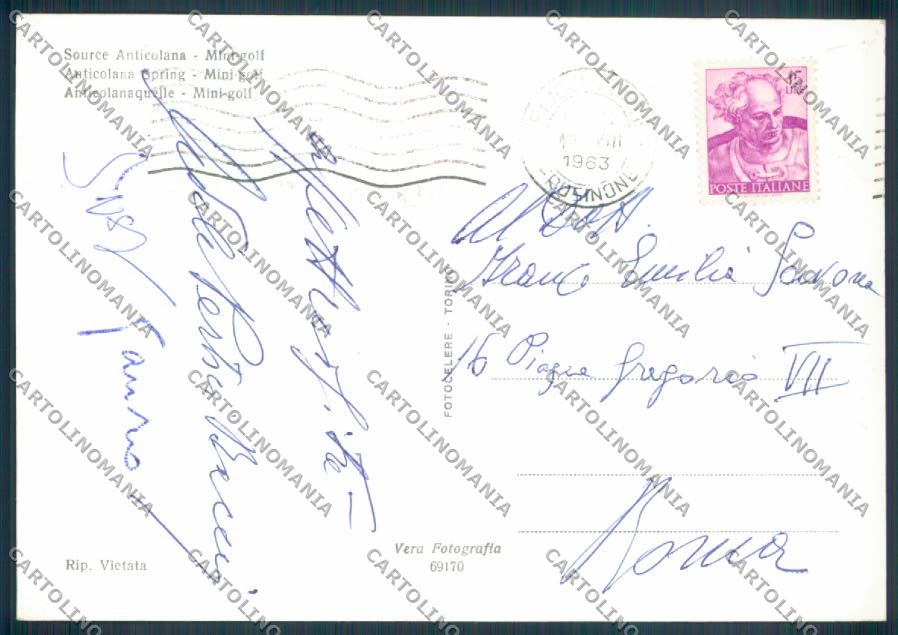 Source Anticolana - Mini-golf
Anticolana Spring - Mini-golf
Anticolanaquelle - Mini-golf
1963
FROSINONE
15
LIRE
POSTE ITALIANE
Al Dott.
Franco Emilio Savona
16 Piazza Gregorio VII
Roma
Affettuosità
Susy
FOTOCELERE - TORINO
Vera Fotografia
69170
Rip. Vietata
CARTOLINOMANIA